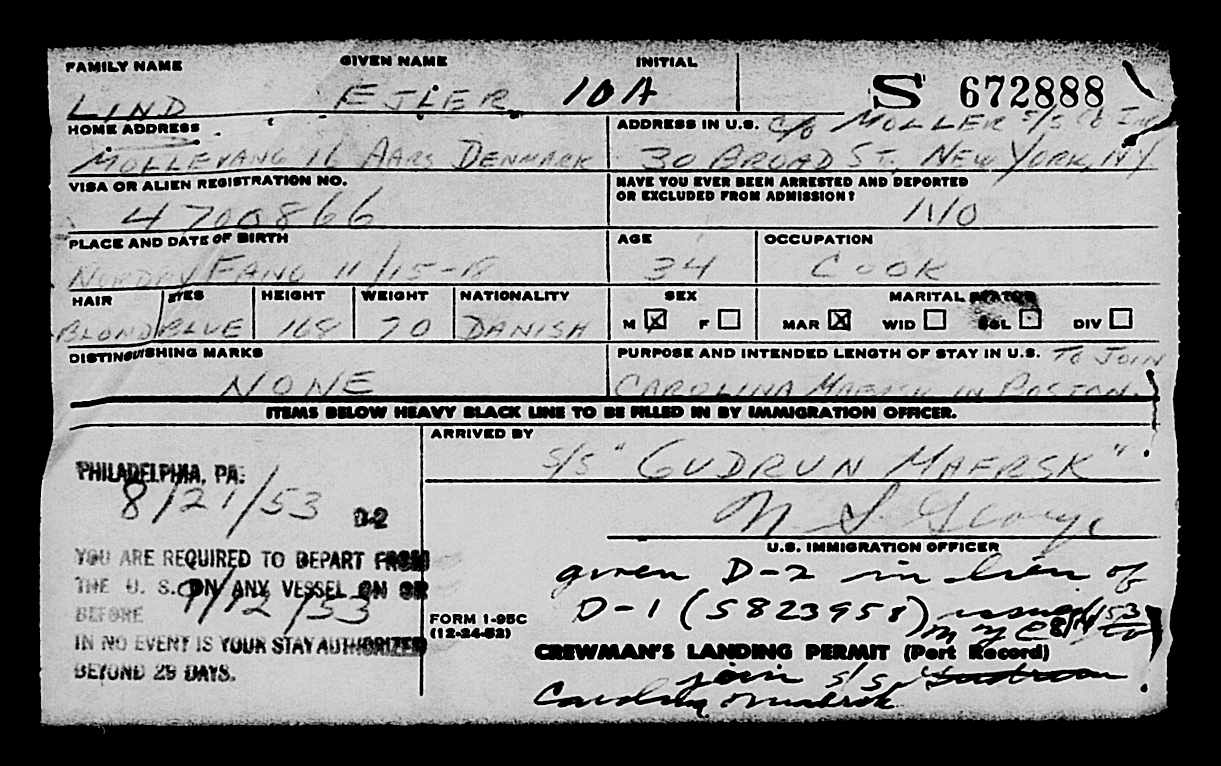 FAMILY NAME GIVEN NAME INITIAL
LIND EJLER 10A S 672888
HOME ADDRESS ADDRESS IN U.S. C/O MOLLER S/S CO INC
MOLLEVANG 16 AARS DENMARK 30 BROAD ST, NEW YORK, NY
VISA OR ALIEN REGISTRATION NO. HAVE YOU EVER BEEN ARRESTED AND DEPORTED
OR EXCLUDED FROM ADMISSION?
4700866 NO
PLACE AND DATE OF BIRTH AGE OCCUPATION
FANO 11/15-18 34 COOK
HAIR EYES HEIGHT WEIGHT NATIONALITY SEX MARITAL STATUS
BLOND BLUE 168 70 DANISH M X F MAR X WID SGL DIV
DISTINGUISHING MARKS PURPOSE AND INTENDED LENGTH OF STAY IN U.S. TO JOIN
NONE CAROLINA MAERSK IN BOSTON.
ITEMS BELOW HEAVY BLACK LINE TO BE FILLED IN BY IMMIGRATION OFFICER.
ARRIVED BY
S/S "GUDRUN MAERSK"
PHILADELPHIA, PA.
8/21/53 D-2
N. S. George
U.S. IMMIGRATION OFFICER
YOU ARE REQUIRED TO DEPART FROM
THE U. S. ON ANY VESSEL ON OR
BEFORE 9/12/53
IN NO EVENT IS YOUR STAY AUTHORIZED
BEYOND 29 DAYS.
given D-2 in lieu of
D-1 (5823958) issued
N Y C 8/14/53
FORM I-95C
(12-24-52)
CREWMAN'S LANDING PERMIT (Port Record)
join S/S Gudrun
Carolina Maersk